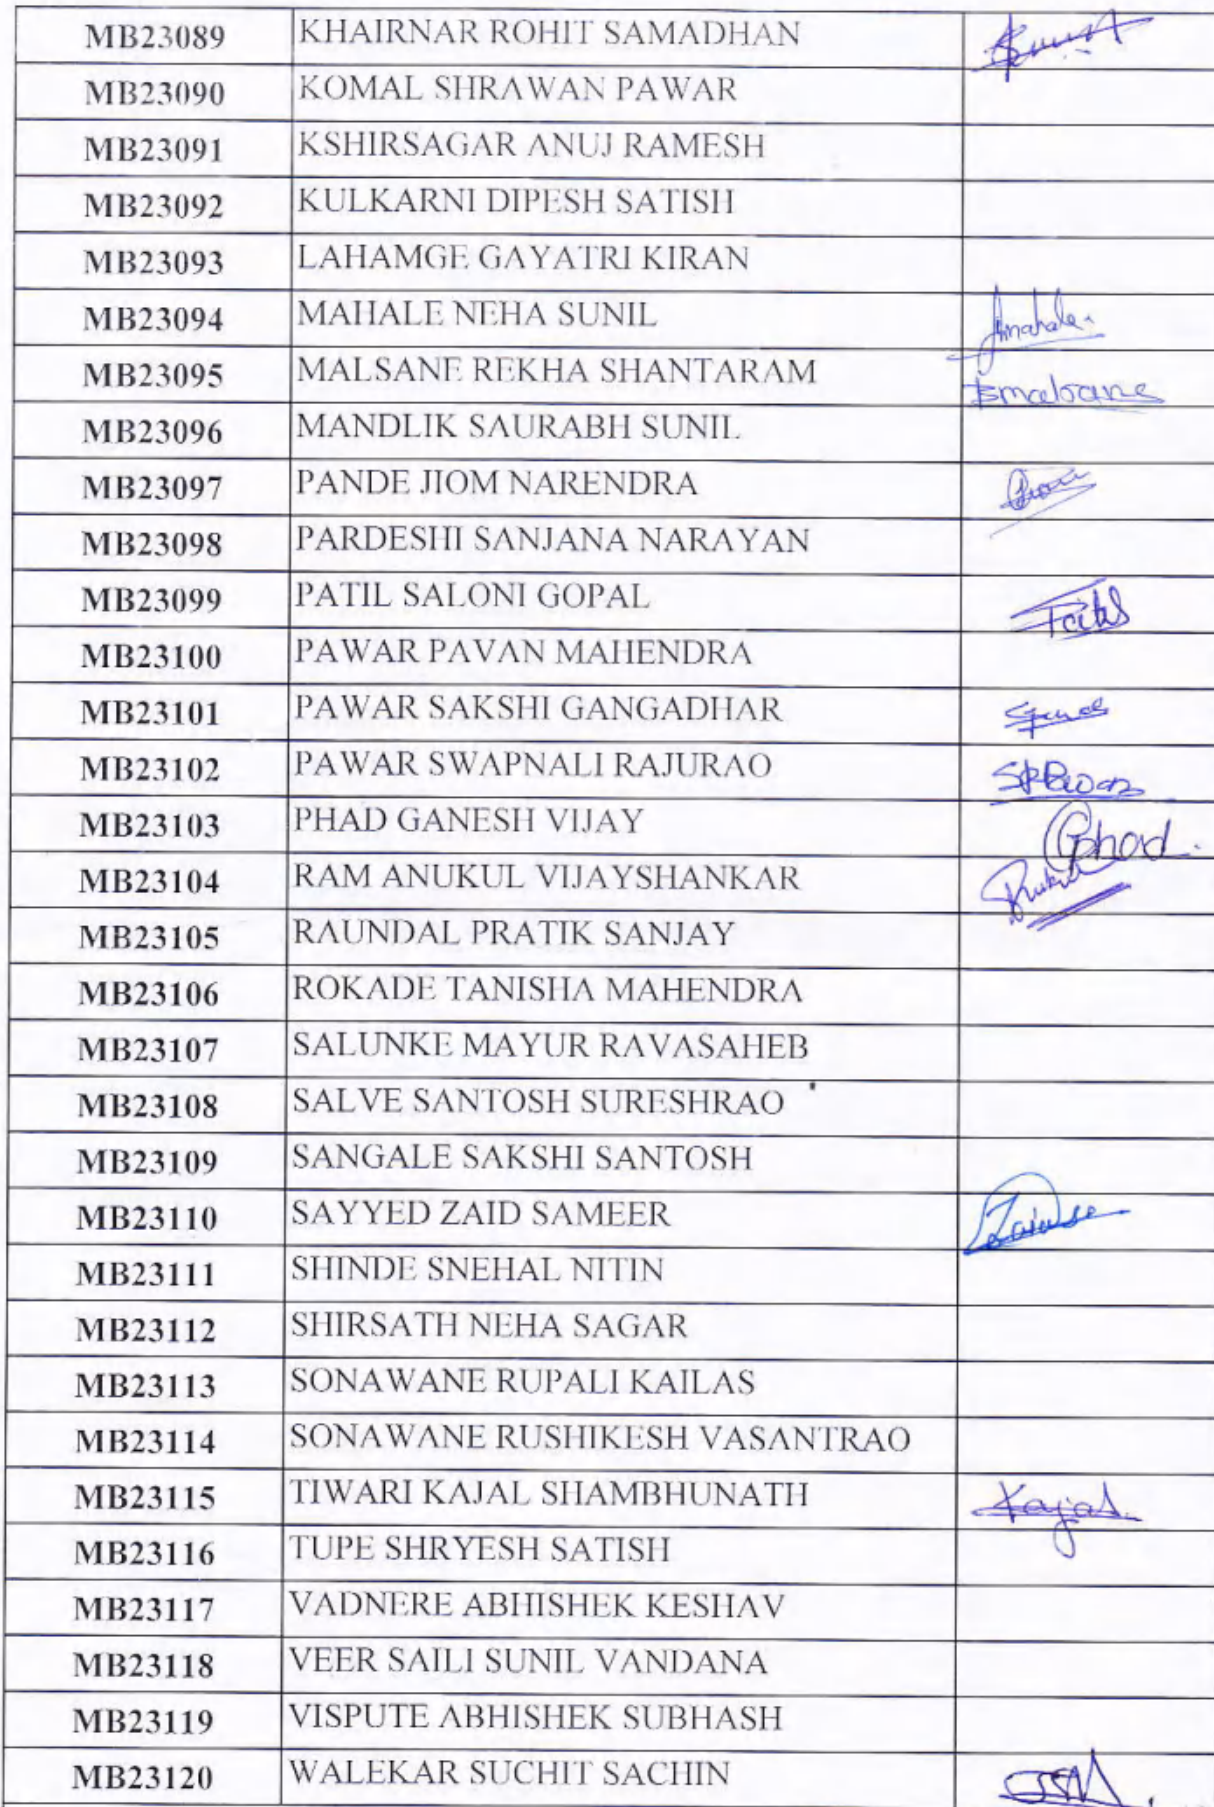 MB23089 KHAIRNAR ROHIT SAMADHAN
MB23090 KOMAL SHRAWAN PAWAR
MB23091 KSHIRSAGAR ANUJ RAMESH
MB23092 KULKARNI DIPESH SATISH
MB23093 LAHAMGE GAYATRI KIRAN
MB23094 MAHALE NEHA SUNIL
MB23095 MALSANE REKHA SHANTARAM
MB23096 MANDLIK SAURABH SUNIL
MB23097 PANDE JIOM NARENDRA
MB23098 PARDESHI SANJANA NARAYAN
MB23099 PATIL SALONI GOPAL
MB23100 PAWAR PAVAN MAHENDRA
MB23101 PAWAR SAKSHI GANGADHAR
MB23102 PAWAR SWAPNALI RAJURAO SRPawar
MB23103 PHAD GANESH VIJAY
MB23104 RAM ANUKUL VIJAYSHANKAR
MB23105 RAUNDAL PRATIK SANJAY
MB23106 ROKADE TANISHA MAHENDRA
MB23107 SALUNKE MAYUR RAVASAHEB
MB23108 SALVE SANTOSH SURESHRAO
MB23109 SANGALE SAKSHI SANTOSH
MB23110 SAYYED ZAID SAMEER
MB23111 SHINDE SNEHAL NITIN
MB23112 SHIRSATH NEHA SAGAR
MB23113 SONAWANE RUPALI KAILAS
MB23114 SONAWANE RUSHIKESH VASANTRAO
MB23115 TIWARI KAJAL SHAMBHUNATH Kajal
MB23116 TUPE SHRYESH SATISH
MB23117 VADNERE ABHISHEK KESHAV
MB23118 VEER SAILI SUNIL VANDANA
MB23119 VISPUTE ABHISHEK SUBHASH
MB23120 WALEKAR SUCHIT SACHIN